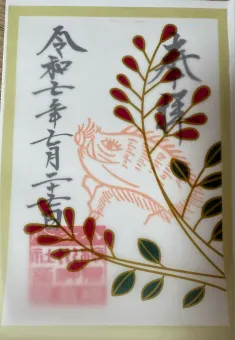 奉拝
令和七年七月二十 日